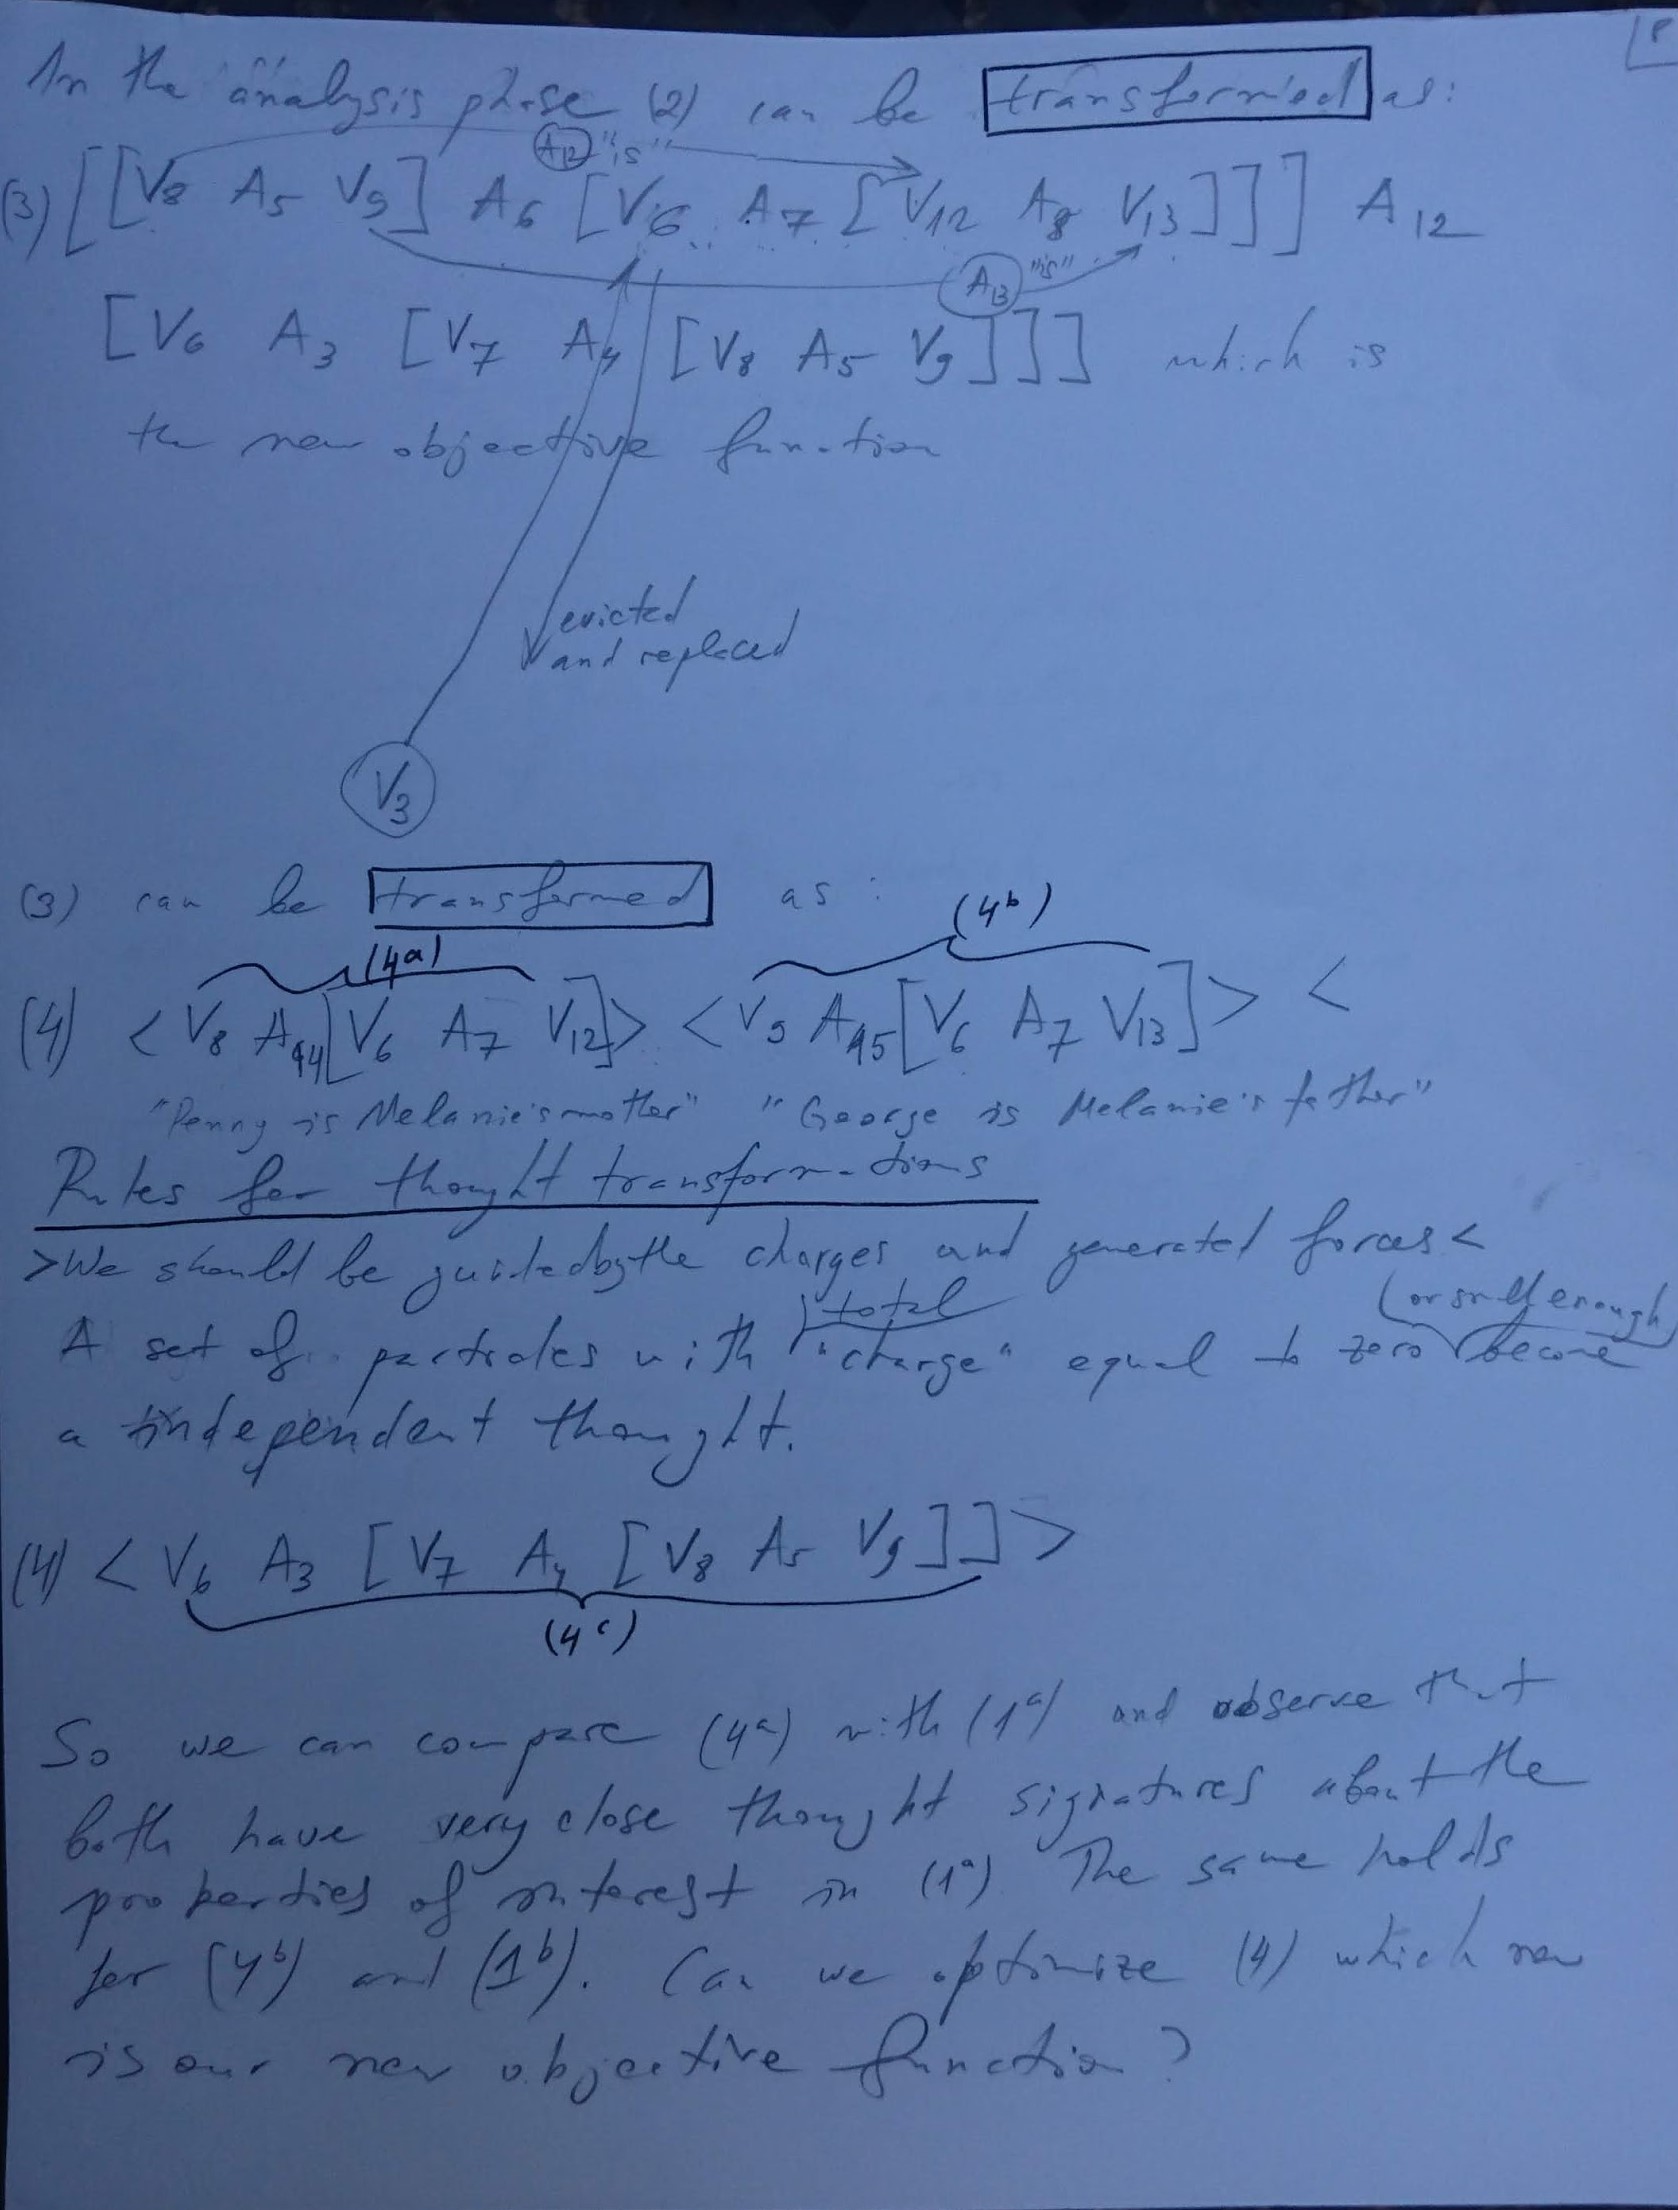 In the analysis phase (2) can be transformed as:
A12 "is"
(3) [[V8 A5 V9] A6 [V6 A7 [V12 A8 V13]]] A12
A13 "is"
[V6 A3 [V7 A4 [V8 A5 V9]]] which is
the new objective function
evicted
and replaced
V3
(3) can be transformed as:
(4a) (4b)
(4) <V8 A14 [V6 A7 V12]> <V9 A15 [V6 A7 V13]> <
"Penny is Melanie's mother" "George is Melanie's father"
Rules for thought transformations
>We should be guided by the charges and generated forces<
total (or small enough)
A set of particles with "charge" equal to zero become
a independent thought.
(4) <V6 A3 [V7 A4 [V8 A5 V9]]>
(4c)
So we can compare (4a) with (1a) and observe that
both have very close thought signatures about the
properties of interest in (1a) The same holds
for (4b) and (1b). Can we optimize (4) which now
is our new objective function?